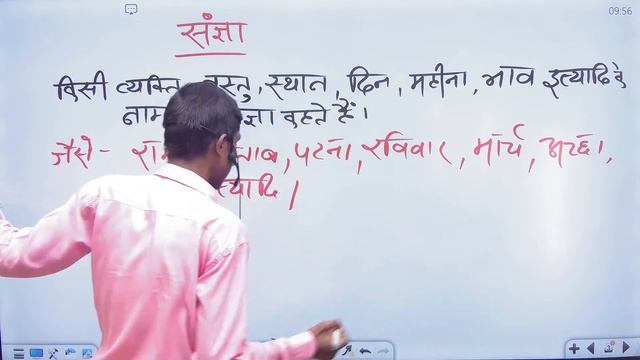 09:56
संज्ञा
किसी व्यक्ति, वस्तु, स्थान, दिन, महीना, भाव इत्यादि के
नाम कहते हैं।
जैसे- पटना, रविवार, मार्च, अच्छा,